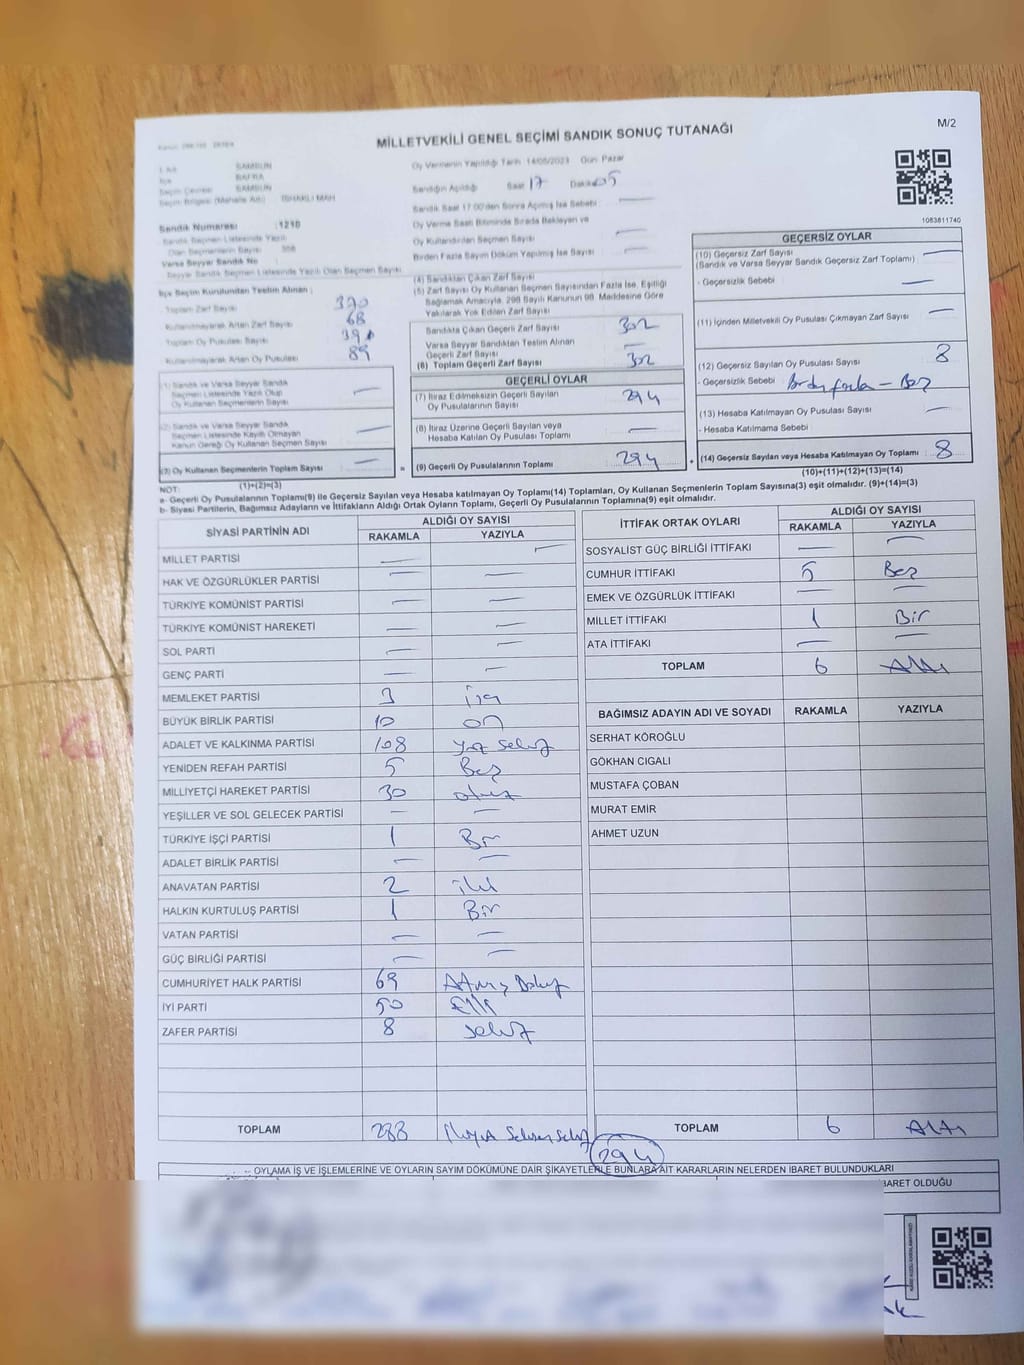 MİLLETVEKİLİ GENEL SEÇİMİ SANDIK SONUÇ TUTANAĞI
M/2
1083811740
SAMSUN
BAFRA
SAMSUN
Oy Vermenin Yapıldığı Tarih 14/05/2023 Gün Pazar
Sandığın Açıldığı Saat 17 Dakika 05
Sandık Saat 17:00'den Sonra Açılmış İse Sebebi
Oy Verme Saati Bitiminde Sırada Bekleyen ve
Oy Kullandırılan Seçmen Sayısı
Birden Fazla Sayım Döküm Yapılmış İse Sayısı
Sandık Numarası : 1210
Sandık Seçmen Listesinde Yazılı
Olan Seçmenlerin Sayısı
Varsa Seyyar Sandık No
Seyyar Sandık Seçmen Listesinde Yazılı Olan Seçmen Sayısı
İlçe Seçim Kurulundan Teslim Alınan :
Toplam Zarf Sayısı 370
Kullanılmayarak Artan Zarf Sayısı 68
Toplam Oy Pusulası
Kullanılmayarak Artan Oy Pusulası 89
(1) Sandık ve Varsa Seyyar Sandık
Seçmen Listesinde Yazılı Olup
Oy Kullanan Seçmenlerin Sayısı
(2) Sandık ve Varsa Seyyar Sandık
Seçmen Listesinde Kayıtlı Olmayan
Kanun Gereği Oy Kullanan Seçmen Sayısı
(3) Oy Kullanan Seçmenlerin Toplam Sayısı
(1)+(2)=(3)
(4) Sandıktan Çıkan Zarf Sayısı
(5) Zarf Sayısı Oy Kullanan Seçmen Sayısından Fazla İse, Eşitliği
Sağlamak Amacıyla, 298 Sayılı Kanunun 98. Maddesine Göre
Yakılarak Yok Edilen Zarf Sayısı
Sandıkta Çıkan Geçerli Zarf Sayısı 302
Varsa Seyyar Sandıktan Teslim Alınan
Geçerli Zarf Sayısı
(6) Toplam Geçerli Zarf Sayısı 302
GEÇERLİ OYLAR
(7) İtiraz Edilmeksizin Geçerli Sayılan
Oy Pusulalarının Sayısı 294
(8) İtiraz Üzerine Geçerli Sayılan veya
Hesaba Katılan Oy Pusulası Toplamı
(9) Geçerli Oy Pusulalarının Toplamı 294
GEÇERSİZ OYLAR
(10) Geçersiz Zarf Sayısı
(Sandık ve Varsa Seyyar Sandık Geçersiz Zarf Toplamı)
- Geçersizlik Sebebi
(11) İçinden Milletvekili Oy Pusulası Çıkmayan Zarf Sayısı
(12) Geçersiz Sayılan Oy Pusulası Sayısı 8
- Geçersizlik Sebebi Birden fazla - Boş
(13) Hesaba Katılmayan Oy Pusulası Sayısı
- Hesaba Katılmama Sebebi
(14) Geçersiz Sayılan veya Hesaba Katılmayan Oy Toplamı 8
(10)+(11)+(12)+(13)=(14)
NOT:
a- Geçerli Oy Pusulalarının Toplamı(9) ile Geçersiz Sayılan veya Hesaba katılmayan Oy Toplamı(14) Toplamları, Oy Kullanan Seçmenlerin Toplam Sayısına(3) eşit olmalıdır. (9)+(14)=(3)
b- Siyasi Partilerin, Bağımsız Adayların ve İttifakların Aldığı Ortak Oyların Toplamı, Geçerli Oy Pusulalarının Toplamına(9) eşit olmalıdır.
SİYASİ PARTİNİN ADI ALDIĞI OY SAYISI
RAKAMLA YAZIYLA
MİLLET PARTİSİ
HAK VE ÖZGÜRLÜKLER PARTİSİ
TÜRKİYE KOMÜNİST PARTİSİ
TÜRKİYE KOMÜNİST HAREKETİ
SOL PARTİ
GENÇ PARTİ
MEMLEKET PARTİSİ 3
BÜYÜK BİRLİK PARTİSİ 10 on
ADALET VE KALKINMA PARTİSİ 108 yüz sekiz
YENİDEN REFAH PARTİSİ 5 Beş
MİLLİYETÇİ HAREKET PARTİSİ 30 otuz
YEŞİLLER VE SOL GELECEK PARTİSİ
TÜRKİYE İŞÇİ PARTİSİ 1 Bir
ADALET BİRLİK PARTİSİ
ANAVATAN PARTİSİ 2 iki
HALKIN KURTULUŞ PARTİSİ 1 Bir
VATAN PARTİSİ
GÜÇ BİRLİĞİ PARTİSİ
CUMHURİYET HALK PARTİSİ 69 Altmış Dokuz
İYİ PARTİ 50 Elli
ZAFER PARTİSİ 8 sekiz
TOPLAM 288 İkiyüz Seksen Sekiz
İTTİFAK ORTAK OYLARI ALDIĞI OY SAYISI
RAKAMLA YAZIYLA
SOSYALİST GÜÇ BİRLİĞİ İTTİFAKI
CUMHUR İTTİFAKI 5 Beş
EMEK VE ÖZGÜRLÜK İTTİFAKI
MİLLET İTTİFAKI 1 Bir
ATA İTTİFAKI
TOPLAM 6 Altı
BAĞIMSIZ ADAYIN ADI VE SOYADI RAKAMLA YAZIYLA
SERHAT KÖROĞLU
GÖKHAN CIGALI
MUSTAFA ÇOBAN
MURAT EMİR
AHMET UZUN
TOPLAM 6 Altı
294
OYLAMA İŞ VE İŞLEMLERİNE VE OYLARIN SAYIM DÖKÜMÜNE DAİR ŞİKAYETLERLE BUNLARA AİT KARARLARIN NELERDEN İBARET BULUNDUKLARI
BARET OLDUĞU